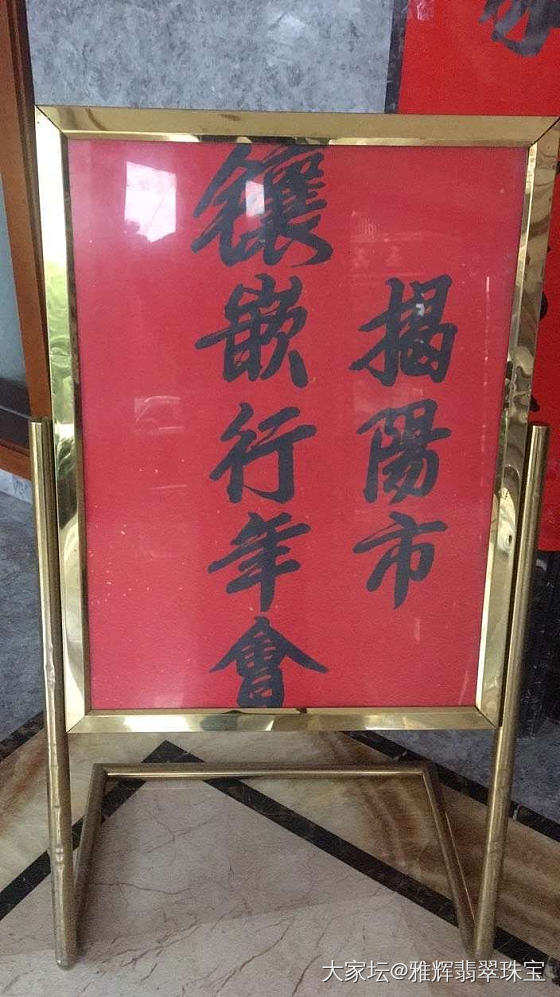 揭陽市
鑲嵌行年會
大家坛@雅辉翡翠珠宝